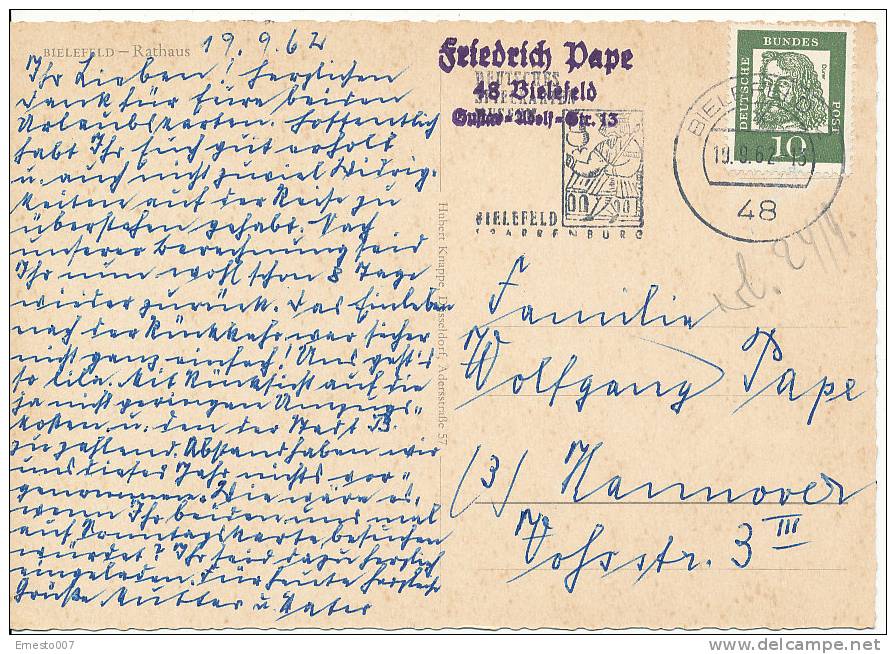 BIELEFELD – Rathaus
19.9.62
Ihr Lieben! Herzlichen
Dank für Eure beiden
Urlaubskarten. Hoffentlich
habt Ihr Euch gut erholt
u. auch nicht zuviel Widrig-
keiten auf der Reise zu
überstehen gehabt. Nach
unserer Berechnung seid
Ihr nun wohl schon 8 Tage
wieder zurück. Das Einleben
nach der Rückkehr war sicher
nicht ganz einfach! Uns geht's
so lila. Mit Rücksicht auf die
ja nicht geringen Umzugs-
kosten u. den der Stadt B.
zu zahlend. Abstand haben wir
uns dieses Jahr nichts vor-
genommen. Wie wäre es,
wenn Ihr beiden uns mal
auf Sonntagskarte besuchen
würdet? Ihr seid dazu herzlich
eingeladen. Für heute herzliche
Grüße Mutter u. Vater
Hubert Knappe, Düsseldorf, Adersstraße 57
Friedrich Pape
48 Bielefeld
Gustav-Adolf-Str. 13
DEUTSCHES
BIELEFELD
SPARRENBURG
BIELEFELD
19.9.62-13
48
DEUTSCHE
BUNDES
POST
Dürer
10
Familie
Wolfgang Pape
(3) Hannover
Vossstr. 3 III
Ernesto007
www.delcampe.net